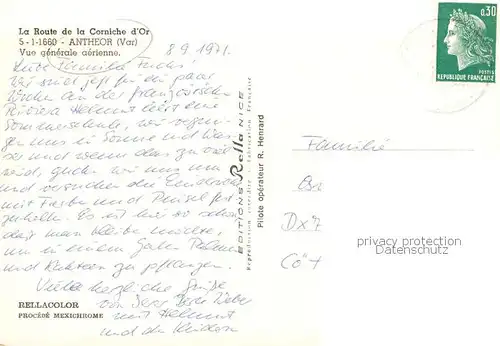 La Route de la Corniche d'Or
5-1-1660 - ANTHEOR (Var)
Vue générale aérienne.
8.9.1971.
Liebe Familie Fuchs!
Wir sind jetzt für ein paar
Wochen an der französischen
Riviera Helmut hört eine
Sommerschule, wir vergnü-
gen uns in Sonne und Was-
ser und wenn das zu viel
wird,
und versuchen die Eindrücke
mit Farbe und Pinsel fest-
zuhalten. Es ist hier so schön
daß man bleiben möchte,
um in einem Garten Palmen
und Kakteen zu pflanzen.
Viele herzliche Grüße
von
mit Helmut
und den Kindern
RELLACOLOR
PROCÉDÉ MEXICHROME
EDITIONS Rella NICE
Reproduction interdite Fabrication Française
Pilote opérateur R. Henrard
0,30
POSTES
REPUBLIQUE FRANÇAISE
Familie
privacy protection
Datenschutz